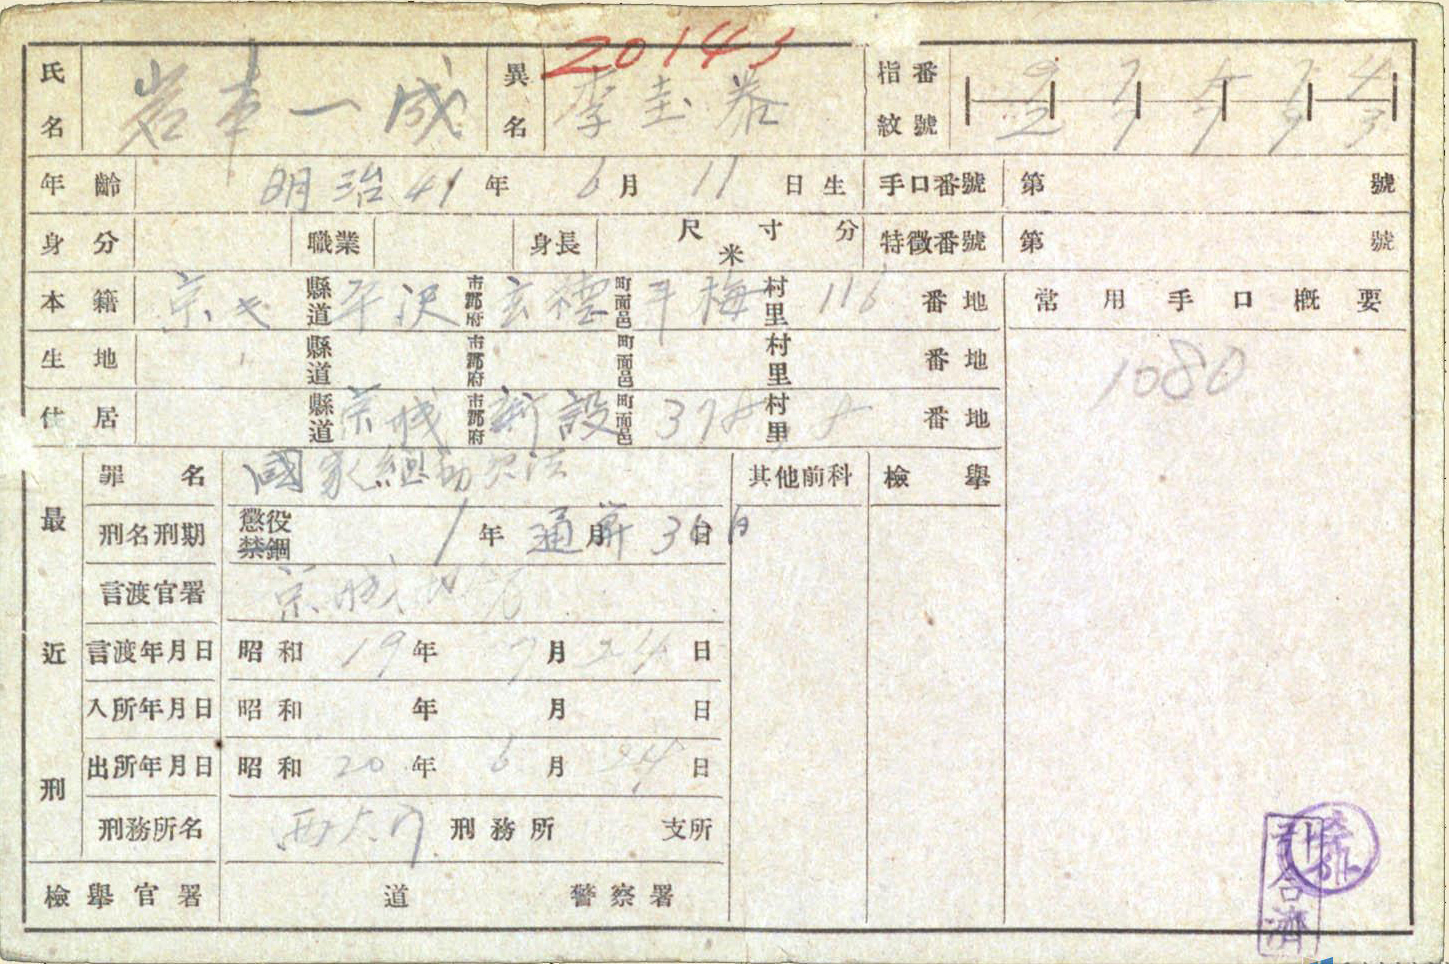 20143
氏名 岩本一成 異名 李圭恭 指紋番號 9 7 7 4 2 7 7 9 3
年齡 明治41年6月11日生 手口番號 第 號
身分 職業 身長 尺寸分 米 特徵番號 第 號
本籍 京 縣道 平沢 市郡府 玄德 町面邑 平梅 村里 116 番地 常用手口概要
生地 縣道 市郡府 町面邑 村里 番地
1080
住居 縣道 京城 市郡府 新設 町面邑 378 村里 8 番地
最近刑
罪名 國家總動員法 其他前科 檢擧
刑名刑期 懲役 禁錮 1年 通算 月 30日 日
言渡官署 京城地
言渡年月日 昭和19年7月24日
入所年月日 昭和 年 月 日
出所年月日 昭和20年6月24日
刑務所名 西大門 刑務所 支所
檢擧官署 道 警察署
合濟